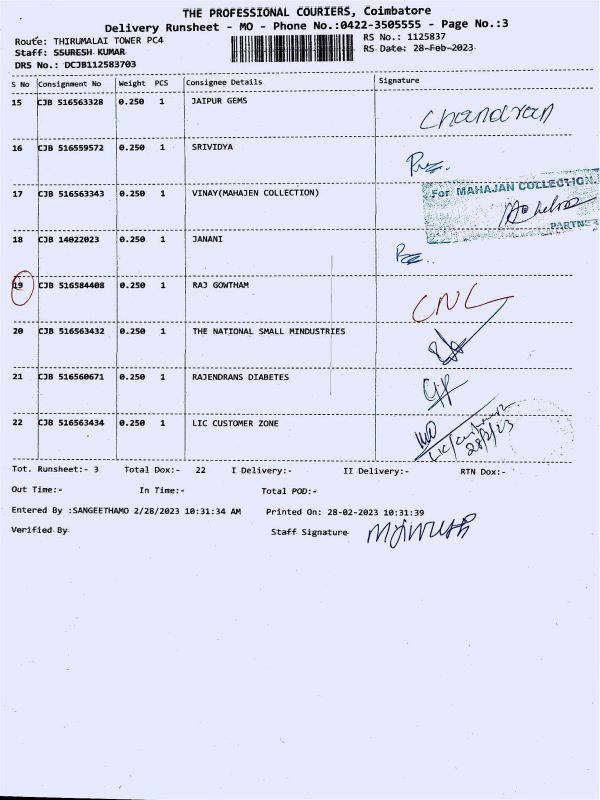 THE PROFESSIONAL COURIERS, Coimbatore
Delivery Runsheet - MO - Phone No.:0422-3505555 - Page No.:3
Route: THIRUMALAI TOWER PC4 RS No.: 1125837
Staff: SSURESH KUMAR RS Date: 28-Feb-2023
DRS No.: DCJB112583703
S No Consignment No Weight PCS Consignee Details Signature
15 CJB 516563328 0.250 1 JAIPUR GEMS Chandran
16 CJB 516559572 0.250 1 SRIVIDYA
17 CJB 516563343 0.250 1 VINAY(MAHAJEN COLLECTION)
For MAHAJAN COLLECTION.
PARTNER
18 CJB 14022023 0.250 1 JANANI
19 CJB 516584408 0.250 1 RAJ GOWTHAM CNL
20 CJB 516563432 0.250 1 THE NATIONAL SMALL MINDUSTRIES
21 CJB 516560671 0.250 1 RAJENDRANS DIABETES
22 CJB 516563434 0.250 1 LIC CUSTOMER ZONE
28/2/23
Tot. Runsheet:- 3 Total Dox:- 22 I Delivery:- II Delivery:- RTN Dox:-
Out Time:- In Time:- Total POD:-
Entered By :SANGEETHAMO 2/28/2023 10:31:34 AM Printed On: 28-02-2023 10:31:39
Verified By Staff Signature